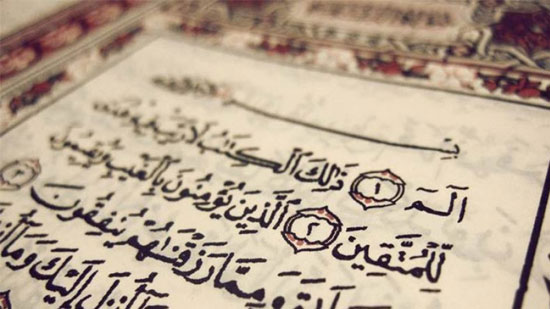 الٓمٓ ١ ذَٰلِكَ الْكِتَٰبُ لَا رَيْبَ فِيهِ هُدًى
لِّلْمُتَّقِينَ ٢ الَّذِينَ يُؤْمِنُونَ بِالْغَيْبِ وَيُقِيمُونَ
وَمِمَّا رَزَقْنَٰهُمْ يُنفِقُونَ ٣
أُنزِلَ إِلَيْكَ وَمَا أُنزِلَ